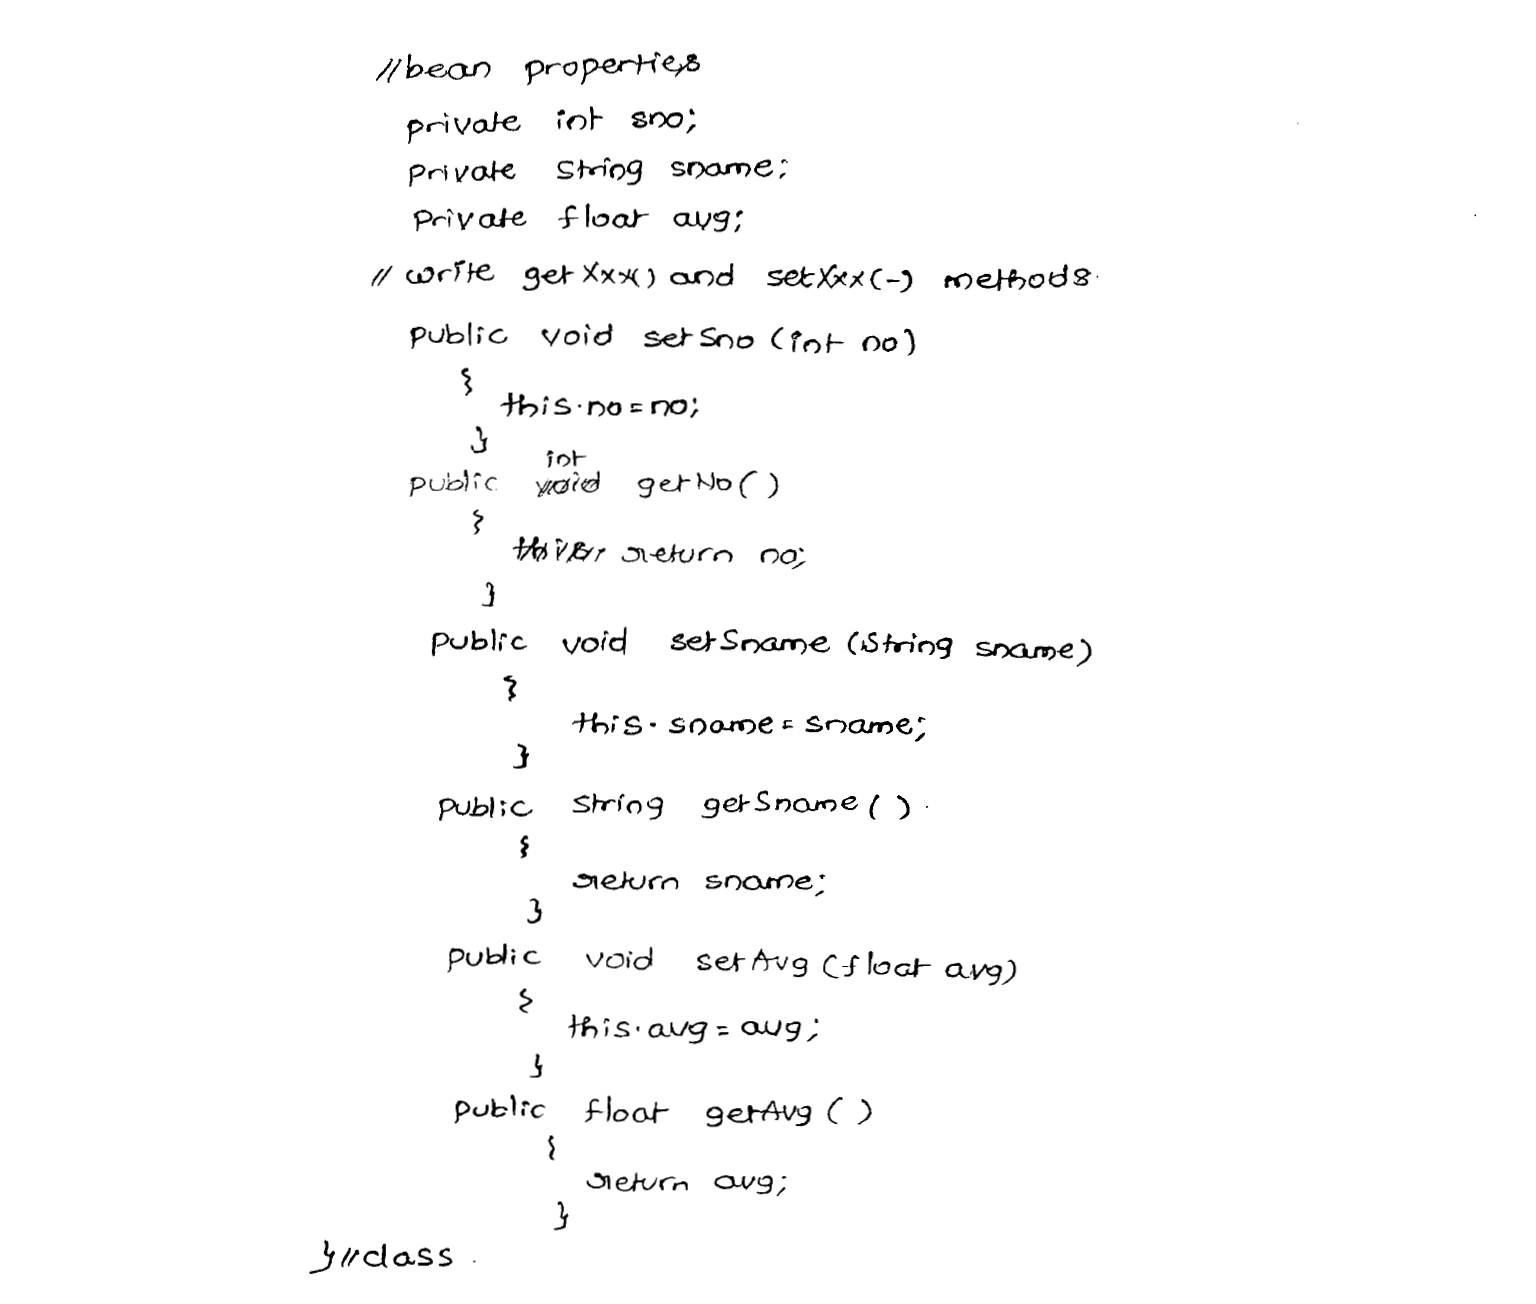 //bean properties
private int sno;
private String sname;
private float avg;
// write getXxx() and setXxx(-) methods.
public void setSno (int no)
{
this.no = no;
}
int
public void getNo()
{
return no;
}
public void setSname (String sname)
{
this.sname = sname;
}
public String getSname()
{
return sname;
}
public void setAvg (float avg)
{
this.avg = avg;
}
public float getAvg()
{
return avg;
}
}//class